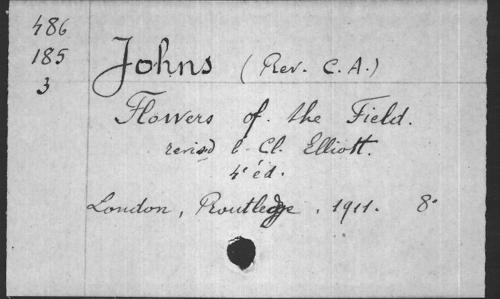 486
185
3
Johns (Rev. C.A.)
Flowers of the Field.
revised b. Cl. Elliott.
4e éd.
London, Routledge, 1911. 8°